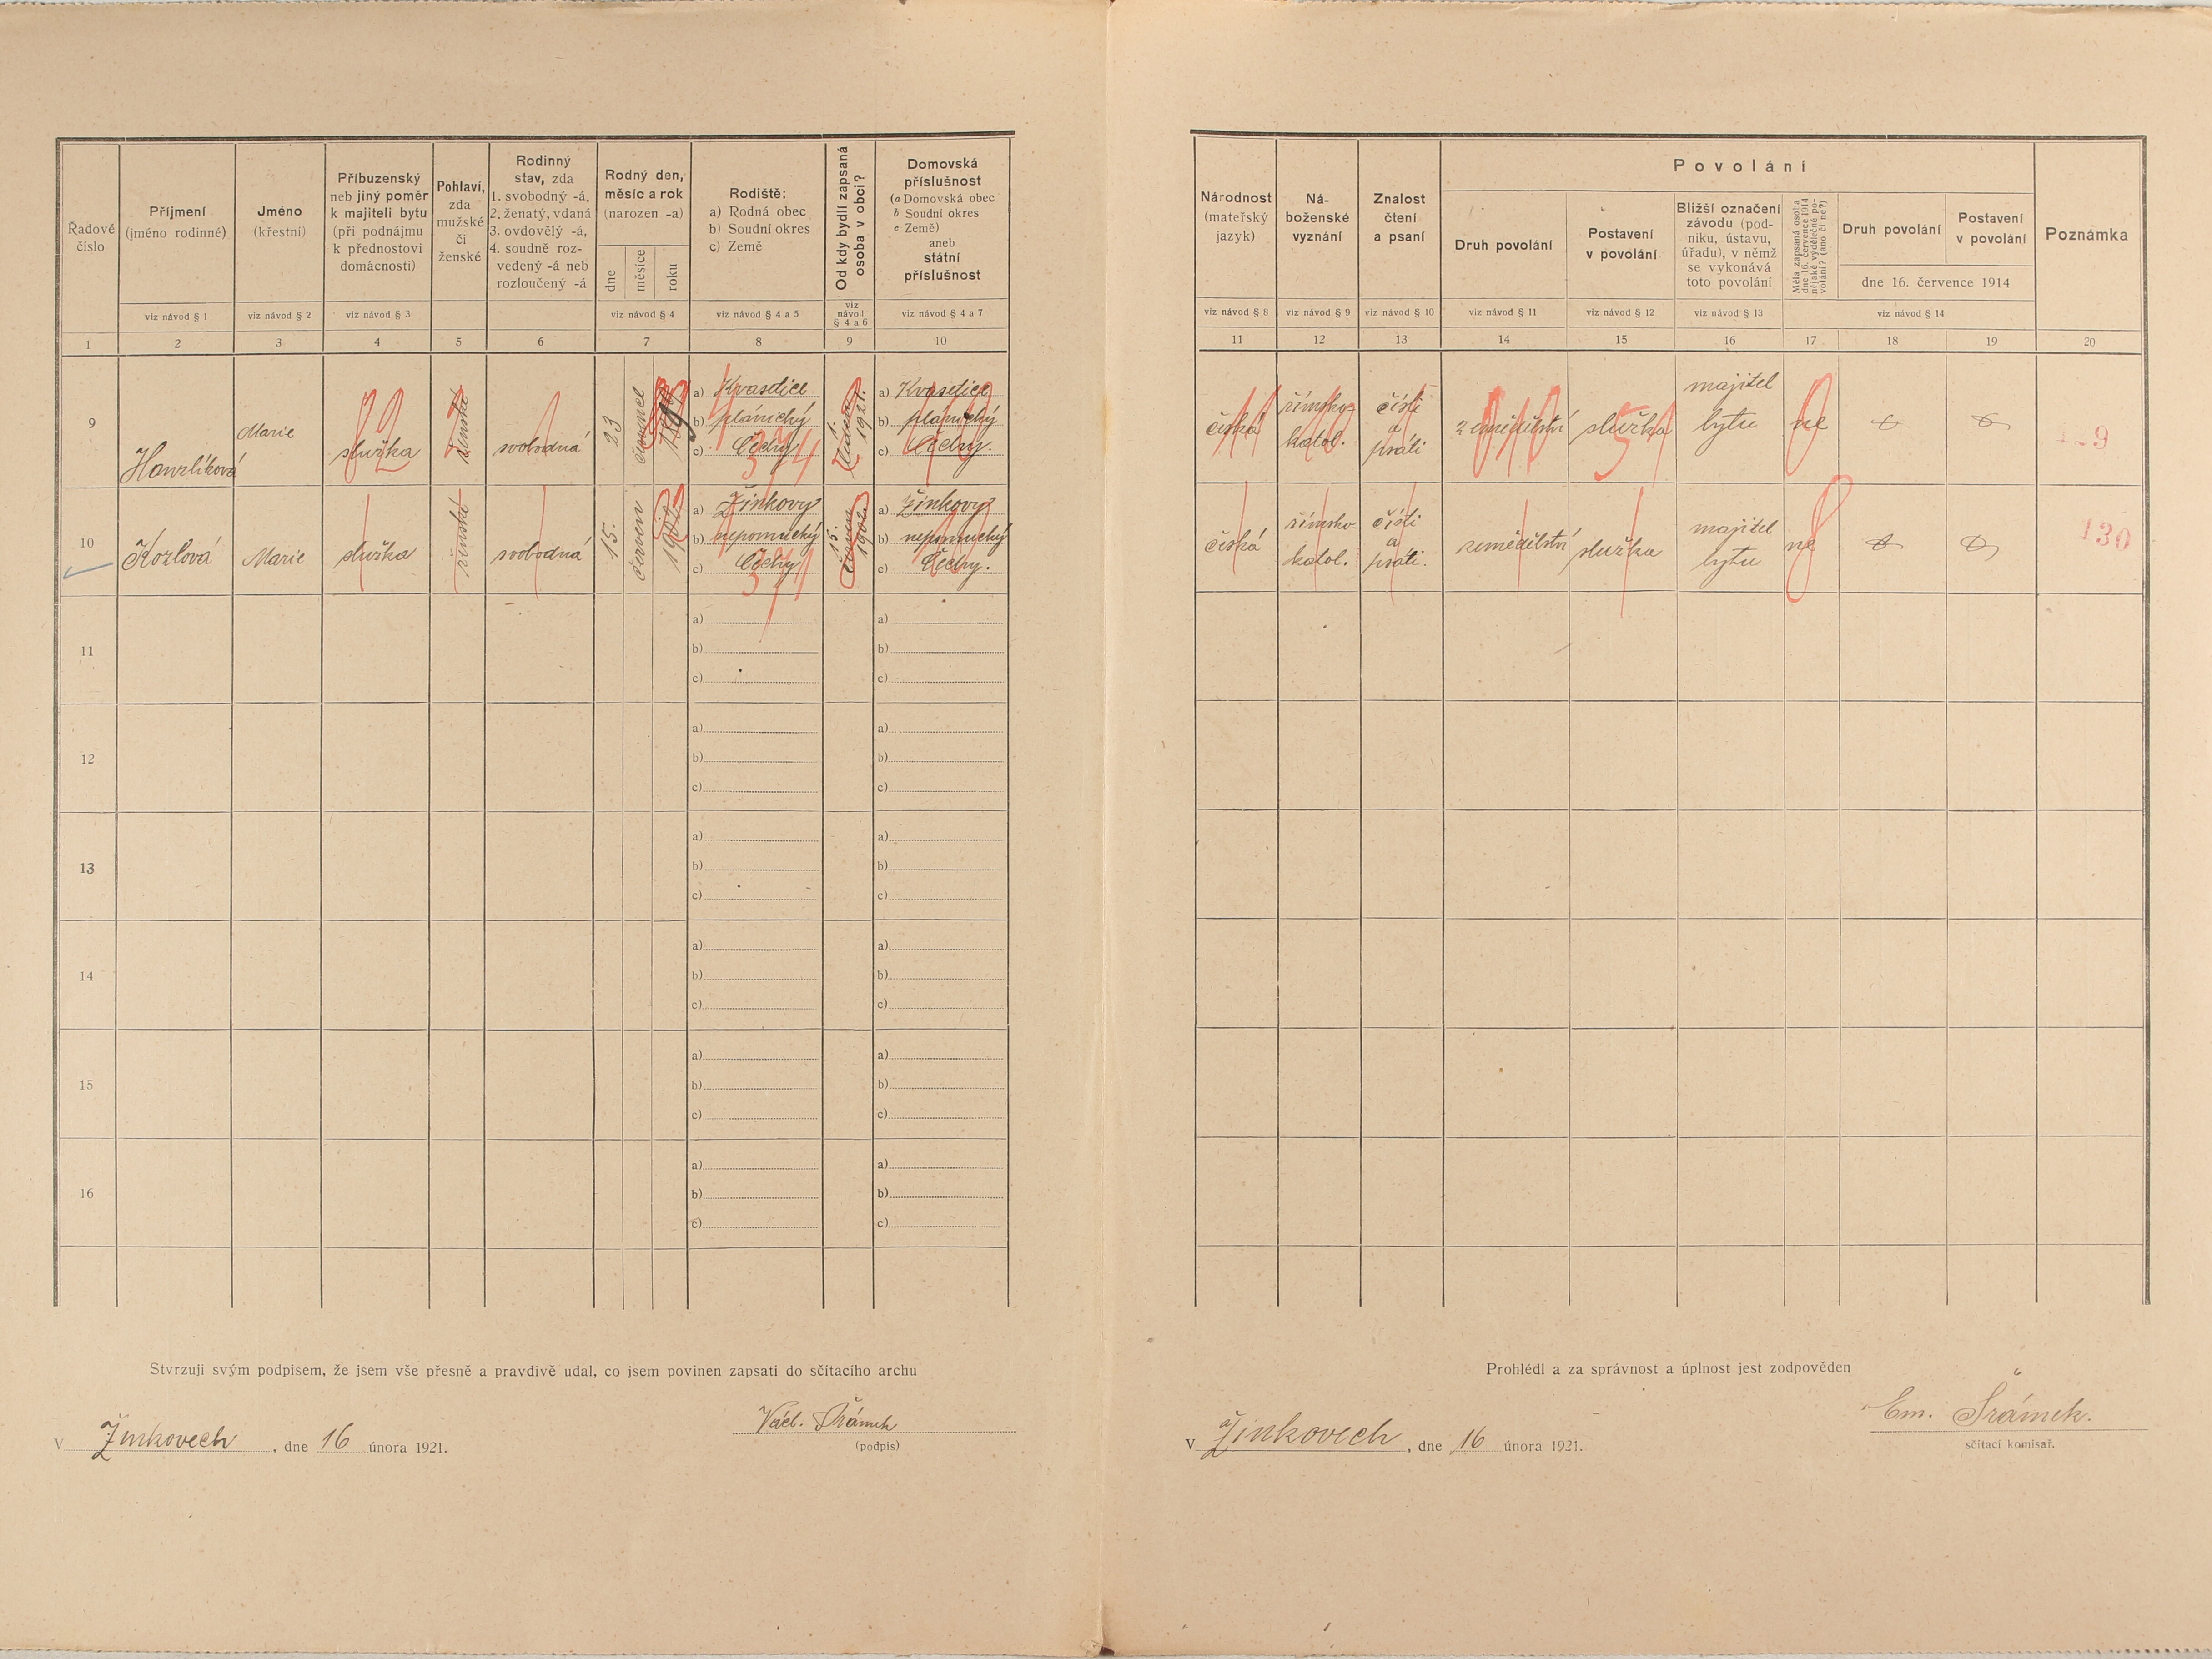 Řadové
číslo
Příjmení
(jméno rodinné)
Jméno
(křestní)
Příbuzenský
neb jiný poměr
k majiteli bytu
(při podnájmu
k přednostovi
domácnosti)
Pohlaví,
zda
mužské
či
ženské
Rodinný
stav, zda
1. svobodný -á,
2. ženatý, vdaná
3. ovdovělý -á,
4. soudně roz-
vedený -á neb
rozloučený -á
Rodný den,
měsíc a rok
(narozen -a)
dne
měsíce
roku
Rodiště:
a) Rodná obec
b) Soudní okres
c) Země
Od kdy bydlí zapsaná
osoba v obci?
Domovská
příslušnost
(a Domovská obec
b Soudní okres
c Země)
aneb
státní
příslušnost
viz návod § 1
viz návod § 2
viz návod § 3
viz návod § 4
viz návod § 4 a 5
viz
návod
§ 4 a 6
viz návod § 4 a 7
1
2
3
4
5
6
7
8
9
10
9
Hanzlíková
Marie
služka
ženské
svobodná
23
a) Kvasetice
b) plánický
c) Čechy
1.
1921.
a) Kvasetice
b) plánický
c) Čechy.
10
Kozlová
Marie
služka
ženské
svobodná
15.
červen
1902
a) Žinkovy
b) nepomucký
c) Čechy
15.
června
1902
a) Žinkovy
b) nepomucký
c) Čechy.
11
a)
b)
c)
a)
b)
c)
12
a)
b)
c)
a)
b)
c)
13
a)
b)
c)
a)
b)
c)
14
a)
b)
c)
a)
b)
c)
15
a)
b)
c)
a)
b)
c)
16
a)
b)
c)
a)
b)
c)
Stvrzuji svým podpisem, že jsem vše přesně a pravdivě udal, co jsem povinen zapsati do sčítacího archu
V Žinkovech, dne 16 února 1921.
Václ. Šrámek
(podpis)
Národnost
(mateřský
jazyk)
Ná-
boženské
vyznání
Znalost
čtení
a psaní
Povolání
Druh povolání
Postavení
v povolání
Bližší označení
závodu (pod-
niku, ústavu,
úřadu), v němž
se vykonává
toto povolání
Měla zapsaná osoba
dne 16. července 1914
nějaké výdělečné po-
volání? (ano či ne?)
Druh povolání
Postavení
v povolání
dne 16. července 1914
Poznámka
viz návod § 8
viz návod § 9
viz návod § 10
viz návod § 11
viz návod § 12
viz návod § 13
viz návod § 14
11
12
13
14
15
16
17
18
19
20
česká
římsko-
katol.
čísti
a
psáti
zemědělství
služka
majitel
bytu
ne
česká
římsko-
katol.
čísti
a
psáti.
zemědělství
služka
majitel
bytu
ne
130
Prohlédl a za správnost a úplnost jest zodpověden
V Žinkovech, dne 16 února 1921.
Em. Šrámek.
sčítací komisař.